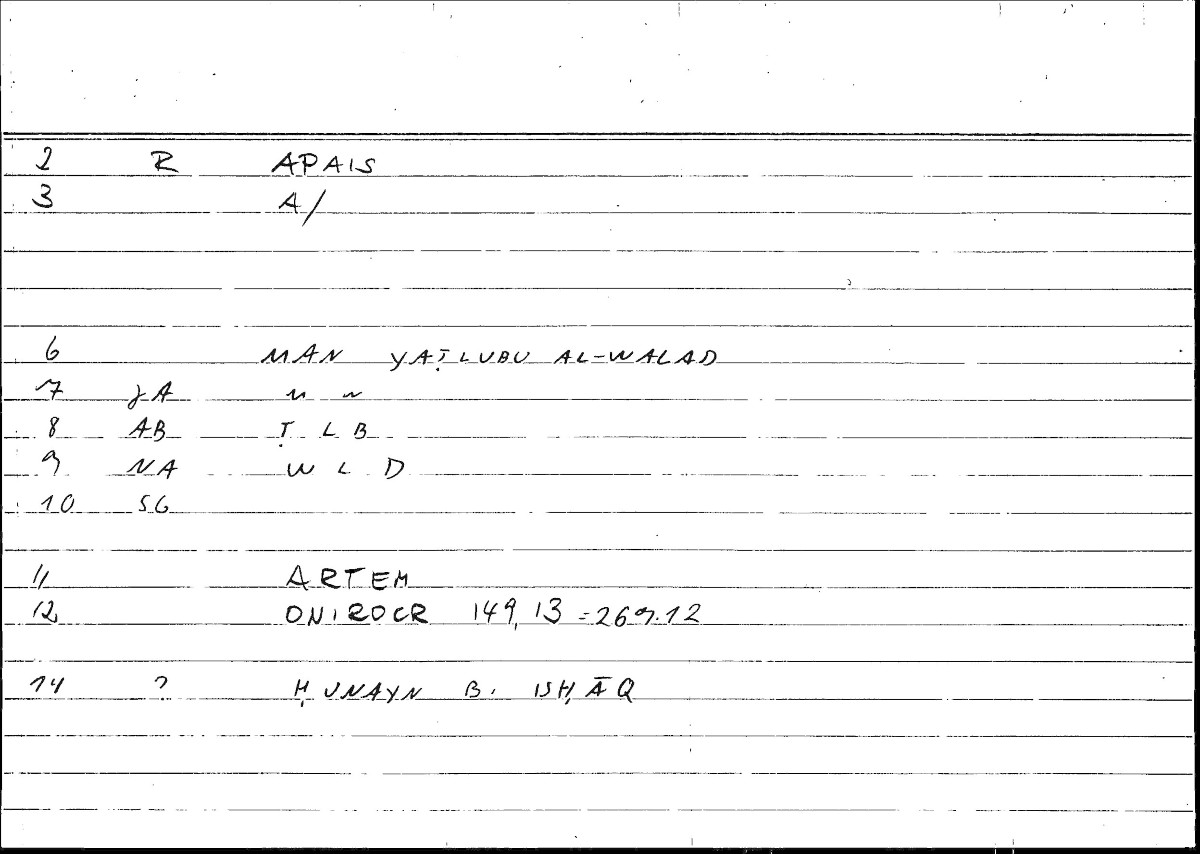 2 R APAIS
3 A/
6 MAN YAṬLUBU AL-WALAD
7 JA M N
8 AB Ṭ L B
9 NA W L D
10 SG
11 ARTEM
12 ONIROCR 149, 13 = 269.12
14 ? ḤUNAYN B. ISḤĀQ